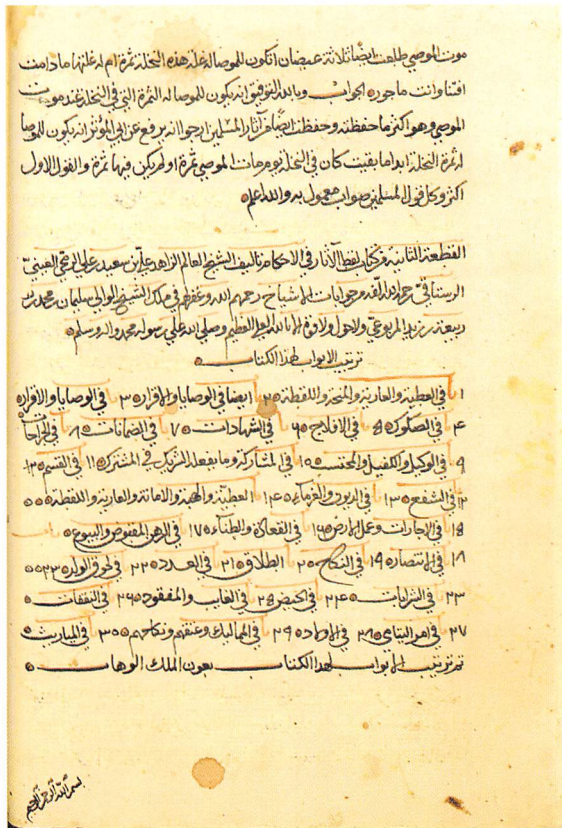 موت الموصي طلعت ايضا ثلاثة عيضان اتكون للموصا له غلة هذه النخلة ثمرة ام له غلتها ما دامت
افتنا وانت ماجور الجواب وبالله التوفيق انه يكون للموصا له الثمرة التي في النخلة عند موت
الموصي وهو اكثر ما حفظته وحفظت ايضا من آثار المسلمين ارجوا انه يرفع عن ابي المؤثر انه يكون للموصا
له ثمرة النخلة ابدا ما بقيت كان في النخلة يوم مات الموصي ثمرة او لم يكن فيها ثمرة والقول الاول
اكثر وكل قول المسلمين صواب معمول به والله اعلم
القطعة الثانية من كتاب لفظ الآثار في الاحكام تاليف الشيخ العالم الزاهد علي بن سعيد بن علي الرمحي العيني
الرستاقي رحمه الله من جوابات الاشياخ رحمهم الله وغفر لهم في ملك الشيخ الوالي سليمان بن محمد بن
ربيعة بن يزيد المربوعي ولا حول ولا قوة الا بالله العلي العظيم وصلى الله على رسوله محمد واله وسلم
ترتيب الابواب لهذا الكتاب
١ باب في العطية والعارية والمنحة واللقطة ٢ باب ايضا في الوصايا والاقرار ٣ باب في الوصايا والاقرار
٤ باب في الصكوك ٥ باب في الافلاج ٦ باب في الشهادات ٧ باب في الضمانات ٨ باب في الجراحات
٩ باب في الوكيل والكفيل والمحتسب ١٠ باب في المشاركة وما يفعله الشريك في المشترك ١١ باب في القسم
١٢ باب في الشفع ١٣ باب في الديون والغرماء ١٤ باب العطية والهبة والامانة والعارية واللقطة
١٥ باب في الاجارات وعمل الارض ١٦ باب في القعادة والطناء ١٧ باب في الرهن المقبوض والبيوع
١٨ باب في الانتصار ١٩ باب في النكاح ٢٠ باب الطلاق ٢١ باب في العدد ٢٢ باب في لحوق الولد
٢٣ باب في السرايات ٢٤ باب في الحيض ٢٥ باب في الغايب والمفقود ٢٦ باب في النفقات
٢٧ باب في امر اليتامى ٢٨ باب في الاولاد ٢٩ باب في المماليك وعتقهم ونكاحهم ٣٠ باب في المياريث
تم ترتيب الابواب لهذا الكتاب بعون الملك الوهاب
بسم الله الرحمن الرحيم